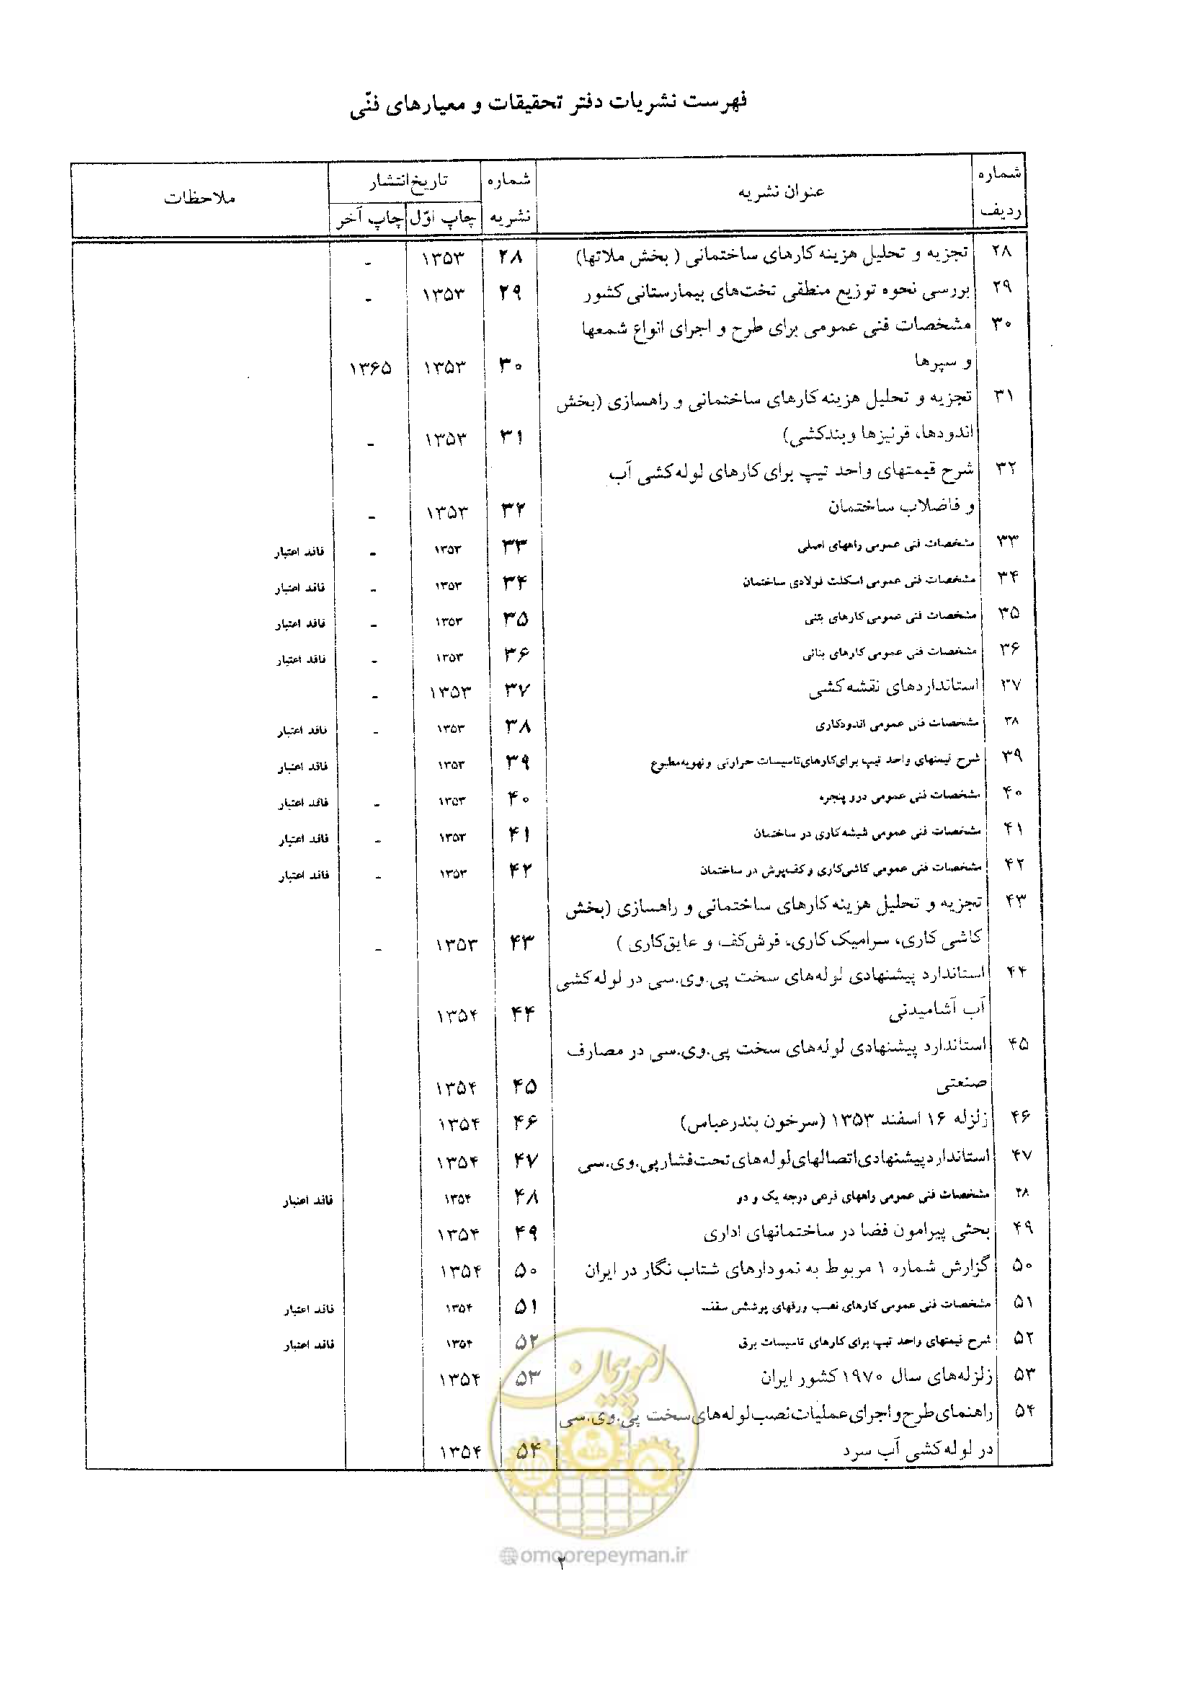 فهرست نشریات دفتر تحقیقات و معیارهای فنّی
شماره ردیف | عنوان نشریه | شماره نشریه | تاریخ انتشار: چاپ اوّل | چاپ آخر | ملاحظات
۲۸ | تجزیه و تحلیل هزینه کارهای ساختمانی ( بخش ملاتها) | ۲۸ | ۱۳۵۳ | -
۲۹ | بررسی نحوه توزیع منطقی تخت‌های بیمارستانی کشور | ۲۹ | ۱۳۵۳ | -
۳۰ | مشخصات فنی عمومی برای طرح و اجرای انواع شمعها
و سپرها | ۳۰ | ۱۳۵۳ | ۱۳۶۵
۳۱ | تجزیه و تحلیل هزینه کارهای ساختمانی و راهسازی (بخش
اندودها، قرنیزها و بندکشی) | ۳۱ | ۱۳۵۳ | -
۳۲ | شرح قیمتهای واحد تیپ برای کارهای لوله‌کشی آب
و فاضلاب ساختمان | ۳۲ | ۱۳۵۳ | -
۳۳ | مشخصات فنی عمومی راههای اصلی | ۳۳ | ۱۳۵۳ | - | فاقد اعتبار
۳۴ | مشخصات فنی عمومی اسکلت فولادی ساختمان | ۳۴ | ۱۳۵۳ | - | فاقد اعتبار
۳۵ | مشخصات فنی عمومی کارهای بتنی | ۳۵ | ۱۳۵۳ | - | فاقد اعتبار
۳۶ | مشخصات فنی عمومی کارهای بنائی | ۳۶ | ۱۳۵۳ | - | فاقد اعتبار
۳۷ | استانداردهای نقشه‌کشی | ۳۷ | ۱۳۵۳ | -
۳۸ | مشخصات فنی عمومی اندودکاری | ۳۸ | ۱۳۵۳ | - | فاقد اعتبار
۳۹ | شرح قیمتهای واحد تیپ برای کارهای تاسیسات حرارتی و تهویه مطبوع | ۳۹ | ۱۳۵۳ | فاقد اعتبار
۴۰ | مشخصات فنی عمومی درو پنجره | ۴۰ | ۱۳۵۳ | - | فاقد اعتبار
۴۱ | مشخصات فنی عمومی شیشه‌کاری در ساختمان | ۴۱ | ۱۳۵۳ | - | فاقد اعتبار
۴۲ | مشخصات فنی عمومی کاشی‌کاری و کف‌پوش در ساختمان | ۴۲ | ۱۳۵۳ | - | فاقد اعتبار
۴۳ | تجزیه و تحلیل هزینه کارهای ساختمانی و راهسازی (بخش
کاشی کاری، سرامیک کاری، فرش‌کف و عایق‌کاری ) | ۴۳ | ۱۳۵۳ | -
۴۴ | استاندارد پیشنهادی لوله‌های سخت پی.وی.سی در لوله‌کشی
آب آشامیدنی | ۴۴ | ۱۳۵۴
۴۵ | استاندارد پیشنهادی لوله‌های سخت پی.وی.سی در مصارف
صنعتی | ۴۵ | ۱۳۵۴
۴۶ | زلزله ۱۶ اسفند ۱۳۵۳ (سرخون بندرعباس) | ۴۶ | ۱۳۵۴
۴۷ | استاندارد پیشنهادی اتصالهای لوله‌های تحت فشار پی.وی.سی | ۴۷ | ۱۳۵۴
۴۸ | مشخصات فنی عمومی راههای فرعی درجه یک و دو | ۴۸ | ۱۳۵۴ | فاقد اعتبار
۴۹ | بحثی پیرامون فضا در ساختمانهای اداری | ۴۹ | ۱۳۵۴
۵۰ | گزارش شماره ۱ مربوط به نمودارهای شتاب نگار در ایران | ۵۰ | ۱۳۵۴
۵۱ | مشخصات فنی عمومی کارهای نصب ورقهای پوششی سقف | ۵۱ | ۱۳۵۴ | فاقد اعتبار
۵۲ | شرح قیمتهای واحد تیپ برای کارهای تاسیسات برق | ۵۲ | ۱۳۵۴ | فاقد اعتبار
۵۳ | زلزله‌های سال ۱۹۷۰ کشور ایران | ۵۳ | ۱۳۵۴
۵۴ | راهنمای طرح و اجرای عملیات نصب لوله‌های سخت پی.وی.سی
در لوله‌کشی آب سرد | ۵۴ | ۱۳۵۴
امور پیمان
@omoorepeyman.ir
۲